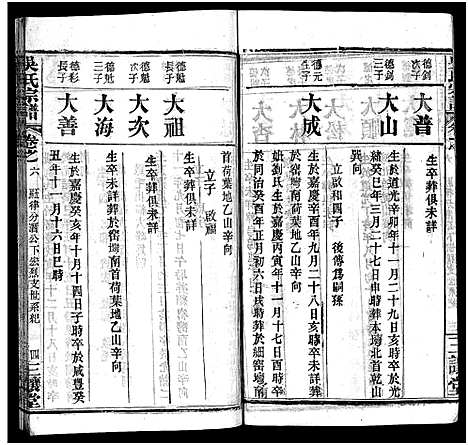 德劍長子
大普
生卒葬俱未詳
德劍次子
大山
生於道光辛卯年十一月二十九日亥時卒於光
緒癸巳年三月二十七日申時葬本塆北首乾山
巽向
立啟和四子 後傳為嗣孫
德元子
大成
生於嘉慶辛酉年九月二十八日亥時卒未詳葬
於窑塆南荷葉地乙山辛向
妣劉氏生於嘉慶丙寅年十一月十七日亥時卒
於同治癸酉年正月初六日戌時葬於細窑塆南
首荷葉地乙山辛向
立子 啟福
德彩長子
大祖
生卒葬俱未詳
德彩次子
大次
生卒葬俱未詳
德魁三子
大海
生卒未詳葬於窑塆南首荷葉地乙山辛向
德魁長子
大善
生於嘉慶癸亥年十月十四日子時卒於咸豐癸
丑年十一月十六日巳時
吳氏宗譜
卷之六
莊律分溍公下宏烈支世系紀
四
三讓堂